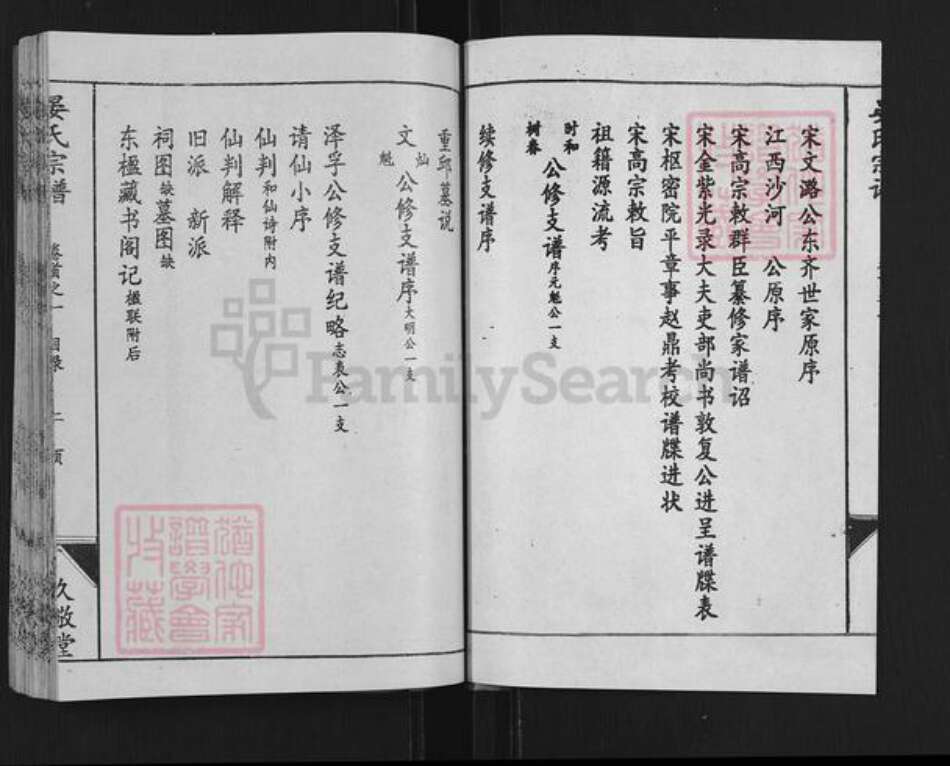 宋文潞公东齐世家原序
江西沙河 公原序
宋高宗敕群臣纂修家谱诏
宋金紫光录大夫吏部尚书敦复公进呈谱牒表
宋枢密院平章事赵鼎考校谱牒进状
宋高宗敕旨
祖籍源流考
时和
树春
公修支谱序元魁公一支
续修支谱序
重邱墓说
文灿
魁
公修支谱序大明公一支
泽孚公修支谱纪略志表公一支
请仙小序
仙判和仙诗附内
仙判解释
旧派 新派
祠图缺墓图缺
东楹藏书阁记楹联附后
晏氏宗谱
卷首之一 目录
久敬堂
FamilySearch
收藏
谱学会